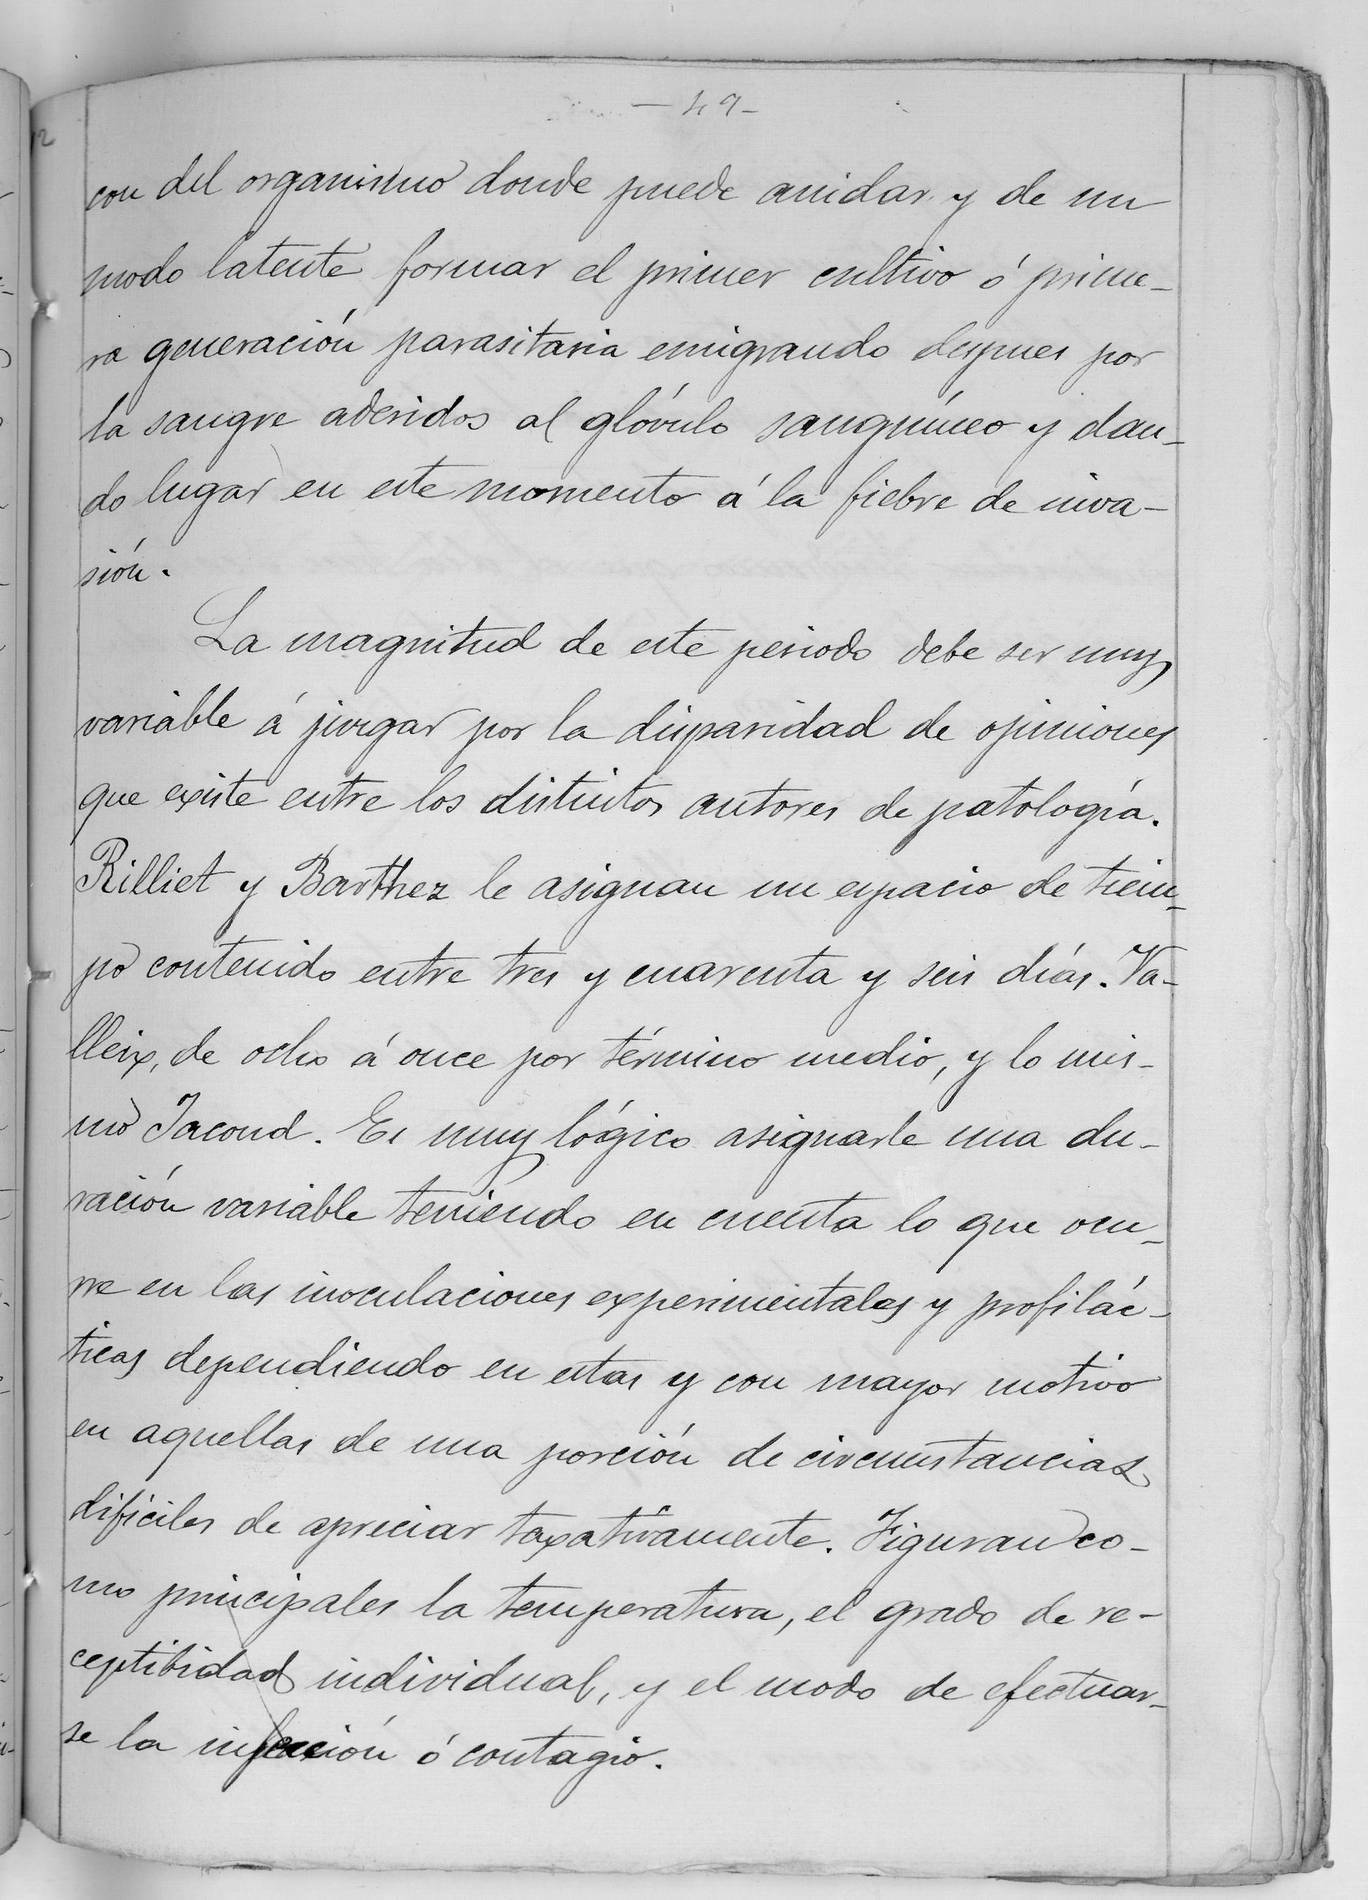 — 49 —
con del organismo donde puede anidar y de un
modo latente formar el primer cultivo ó prime-
ra generación parasitaria emigrando despues por
la sangre aderidos al glóvulo sanguíneo y dan-
do lugar en este momento á la fiebre de inva-
sión.
La magnitud de este periodo debe ser muy
variable á juzgar por la disparidad de opiniones
que existe entre los distintos autores de patología.
Rilliet y Barthez le asignan un espacio de tiem-
po contenido entre tres y cuarenta y seis días. Va-
lleix, de ocho á once por término medio, y lo mis-
mo Jacoud. Es muy lógico asignarle una du-
ración variable teniendo en cuenta lo que ocu-
rre en las inoculaciones experimentales y profilác-
ticas dependiendo en estas y con mayor motivo
en aquellas de una porción de circunstancias
difíciles de apreciar taxativamente. Figuran co-
mo principales la temperatura, el grado de re-
ceptibidad individual, y el modo de efectuar-
se la infección ó contagio.